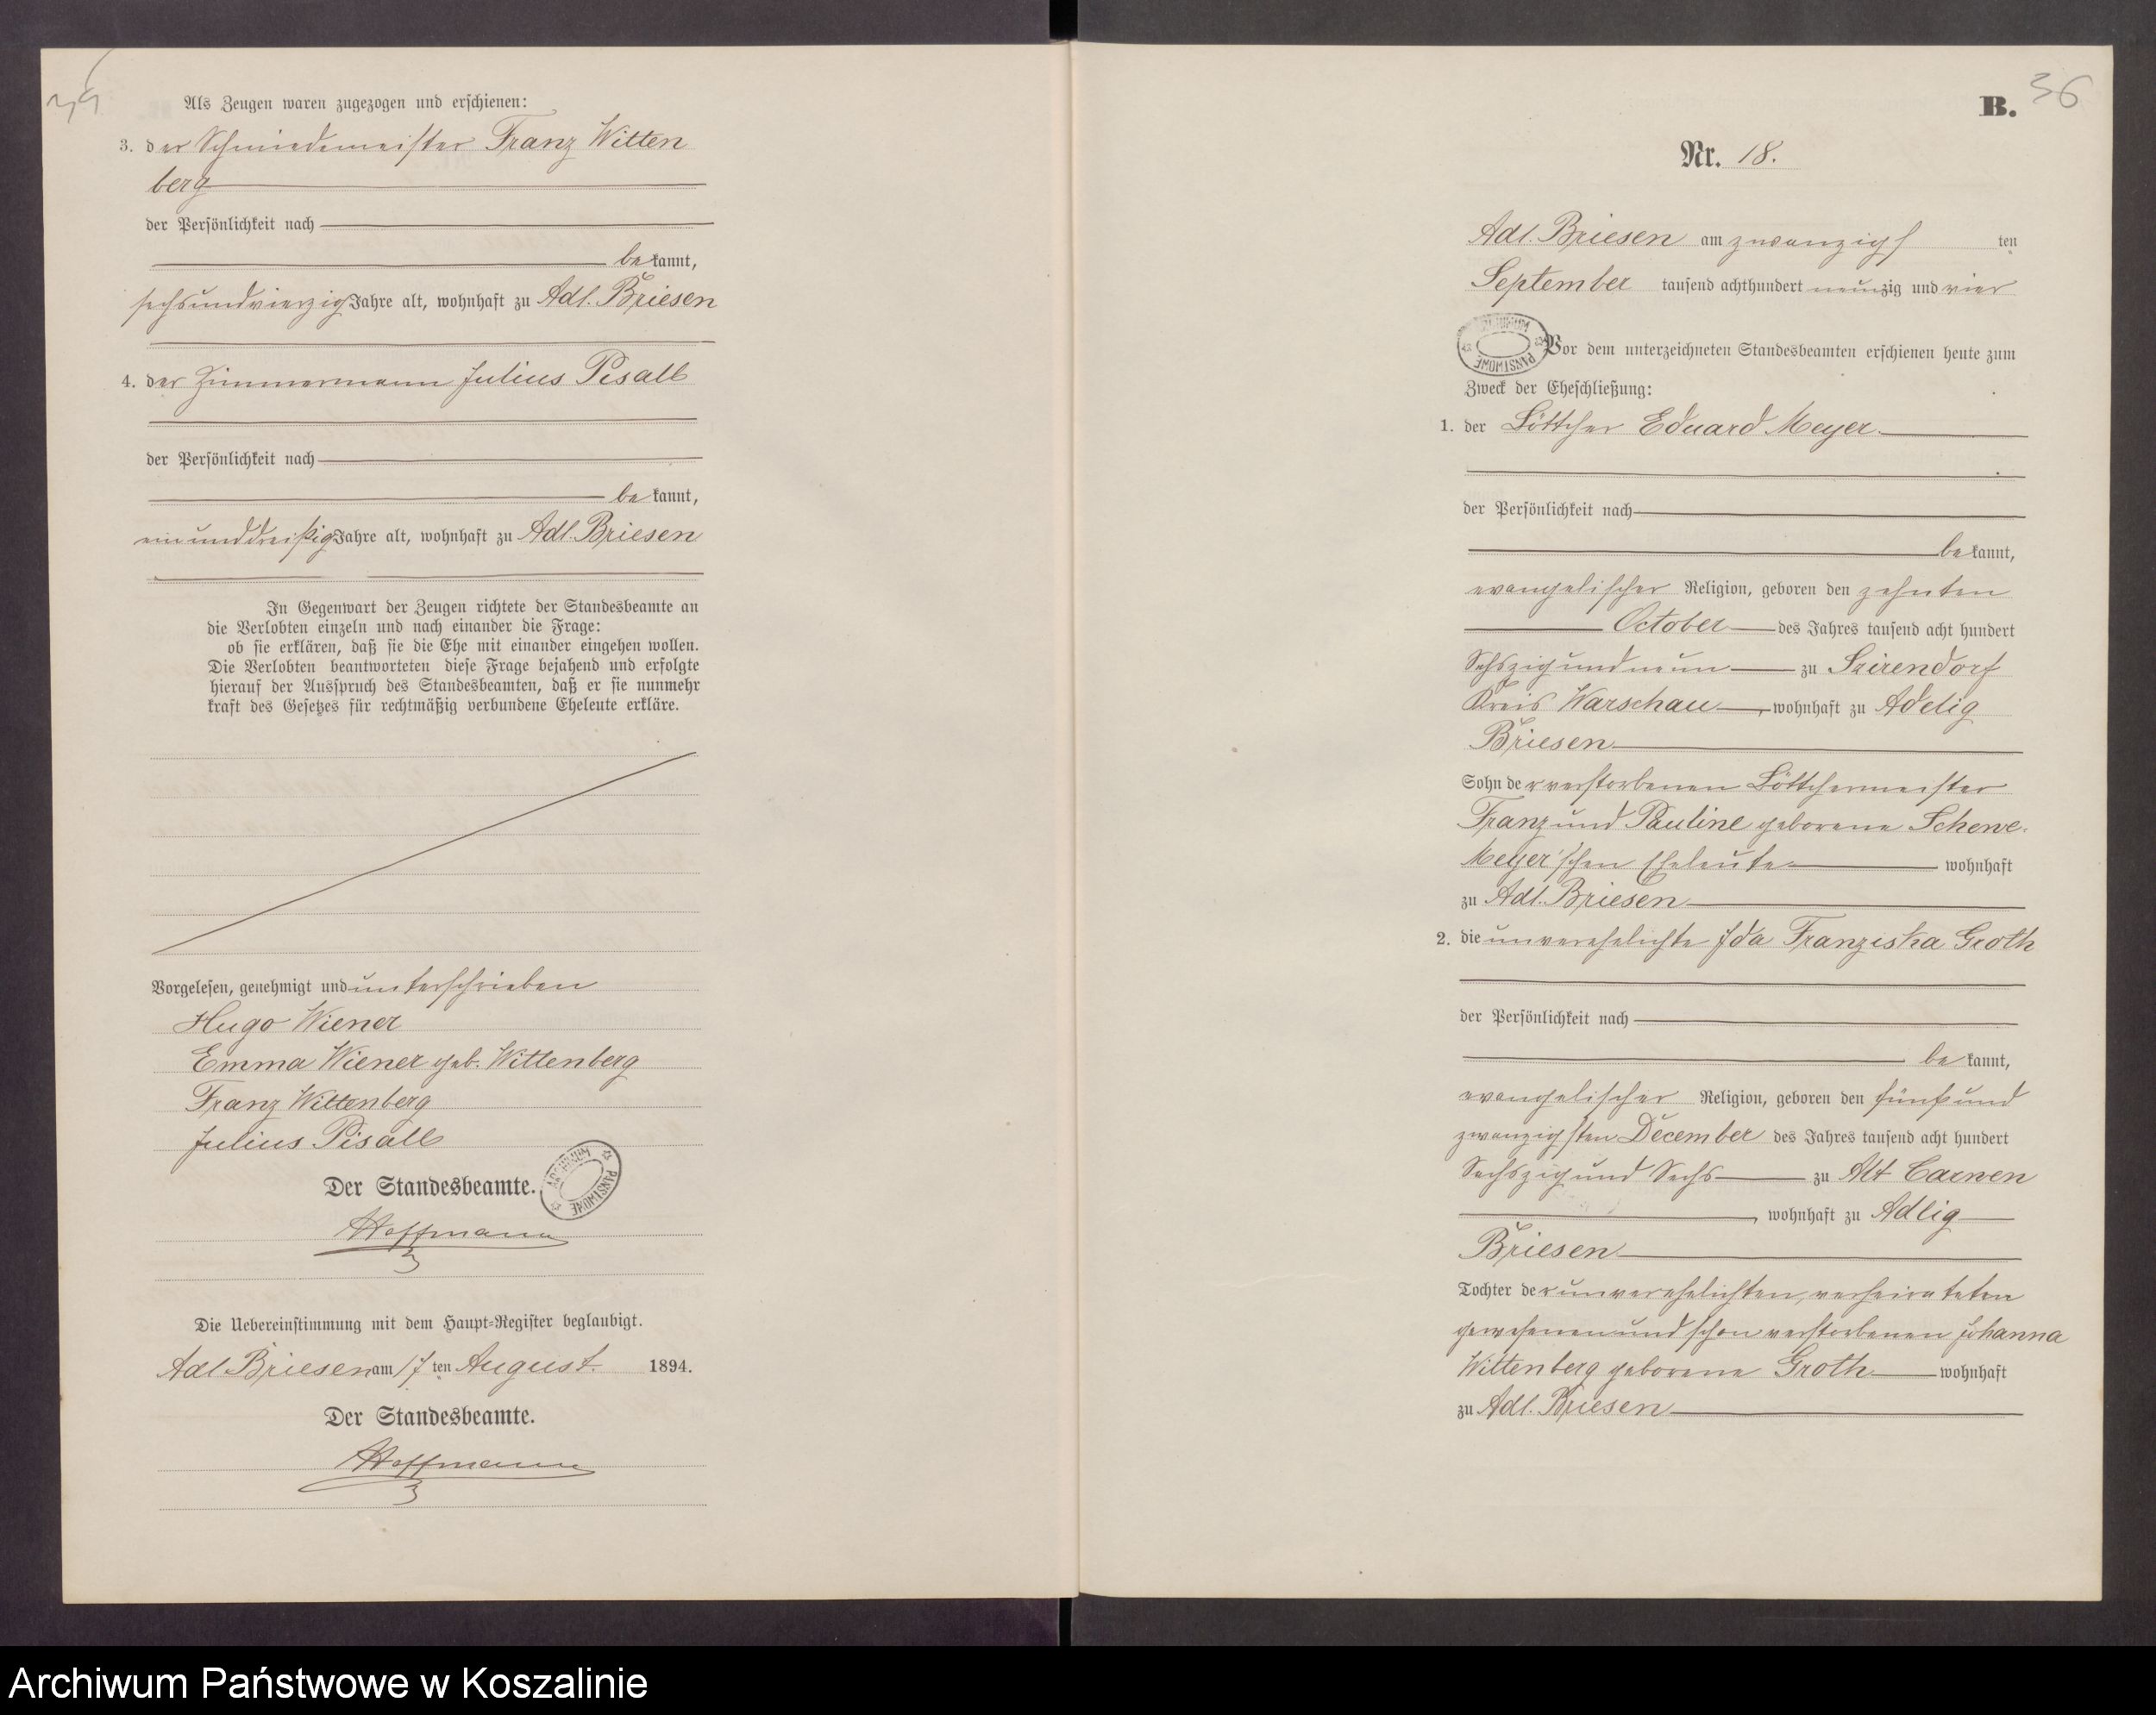 Als Zeugen waren zugezogen und erschienen:
3. der Schmiedemeister Franz Witten
berg
der Persönlichkeit nach
be kannt,
sechsundvierzig Jahre alt, wohnhaft zu Adl. Briesen
4. der Zimmermann Julius Pisall
der Persönlichkeit nach
be kannt,
einunddreißig Jahre alt, wohnhaft zu Adl. Briesen
In Gegenwart der Zeugen richtete der Standesbeamte an
die Verlobten einzeln und nach einander die Frage:
ob sie erklären, daß sie die Ehe mit einander eingehen wollen.
Die Verlobten beantworteten diese Frage bejahend und erfolgte
hierauf der Ausspruch des Standesbeamten, daß er sie nunmehr
kraft des Gesetzes für rechtmäßig verbundene Eheleute erkläre.
Vorgelesen, genehmigt und unterschrieben
Hugo Wiener
Emma Wiener geb. Wittenberg
Franz Wittenberg
Julius Pisall
Der Standesbeamte.
ARCHIWUM PAŃSTWOWE
Hoffmann
Die Uebereinstimmung mit dem Haupt-Register beglaubigt.
Adl Briesen am 17 ten August. 1894.
Der Standesbeamte.
Hoffmann
B. 36
Nr. 18.
Adl. Briesen am zwanzigs ten
September tausend achthundert neunzig und vier
ARCHIWUM PAŃSTWOWE
Vor dem unterzeichneten Standesbeamten erschienen heute zum
Zweck der Eheschließung:
1. der Böttcher Eduard Meyer
der Persönlichkeit nach
be kannt,
evangelischer Religion, geboren den zehnten
October des Jahres tausend acht hundert
Sechszig und neun zu
Kreis Warschau, wohnhaft zu Adelig
Briesen
Sohn der verstorbenen Böttchermeister
Franz und Pauline geborene Schewe-
Meyer'schen Eheleute wohnhaft
zu Adl. Briesen
2. die unverehelichte Ida Franziska Groth
der Persönlichkeit nach
be kannt,
evangelischer Religion, geboren den fünf und
zwanzigsten December des Jahres tausend acht hundert
Sechszig und Sechs zu Alt Carwen
, wohnhaft zu Adlig
Briesen
Tochter der unverehelichten, verheirateten
gewesenen und schon verstorbenen Johanna
Wittenberg geborene Groth wohnhaft
zu Adl. Briesen
Archiwum Państwowe w Koszalinie